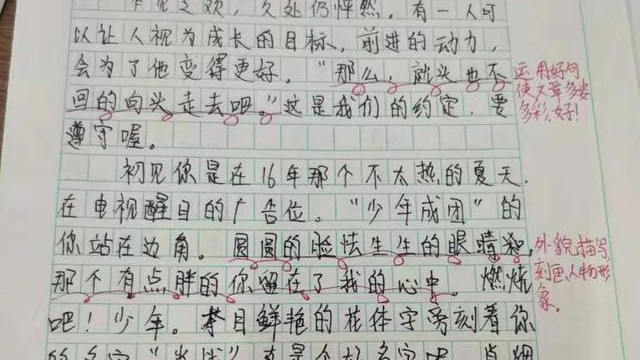 乍见之欢,久处仍怦然。有一人可
以让人视为成长的目标,前进的动力,
会为了他变得更好。"那么,就头也不
回的向头走去吧。"这是我们的约定,要
遵守喔。
运用好句
使文章多姿
多彩,好!
初见你是在16年那个不太热的夏天,
在电视醒目的广告位。"少年成团"的
你站在边角。圆圆的脸怯生生的眼睛和,
那个有点胖的你留在了我的心中。燃烧
吧!少年。夺目鲜艳的花体字旁刻着你
外貌描写
刻画人物形
象。
的名字